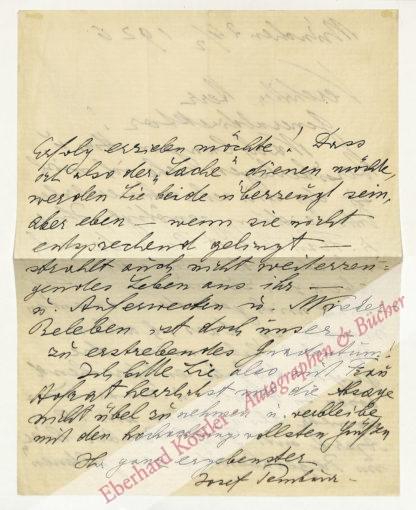 München 24/2 1926
Erfolg erzielen möchte! Dass
ich also der „Sache" dienen möchte,
werden Sie beide überzeugt sein,
aber eben — wenn sie nicht
entsprechend gelingt —
strahlt auch nicht weiterzeu-
gendes Leben aus ihr —
u. Auferwecken u. Wieder
Beleben ist doch unser
zu erstrebendes
Ich bitte Sie also mit Frau
herzlichst mir die Absage
nicht übel zu nehmen u. verbleibe
mit den hochachtungsvollsten Grüßen
Ihr ganz ergebenster
Josef Pembaur
Eberhard Köstler Autographen & Bücher